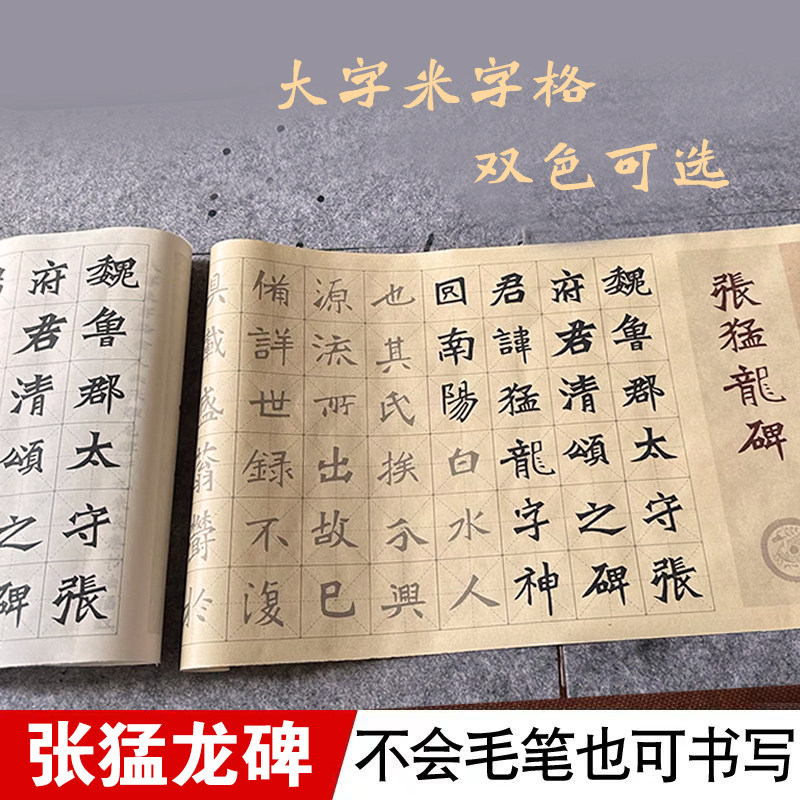 大字米字格
双色可选
張猛龍碑
魏魯郡太守張
府君清頌之碑
君諱猛龍字神
囙南陽白水人
也其氏族分興
源流所出故已
備詳世録不復
載盛蓊欝於
魏魯郡太守張
府君清頌之碑
张猛龙碑
不会毛笔也可书写